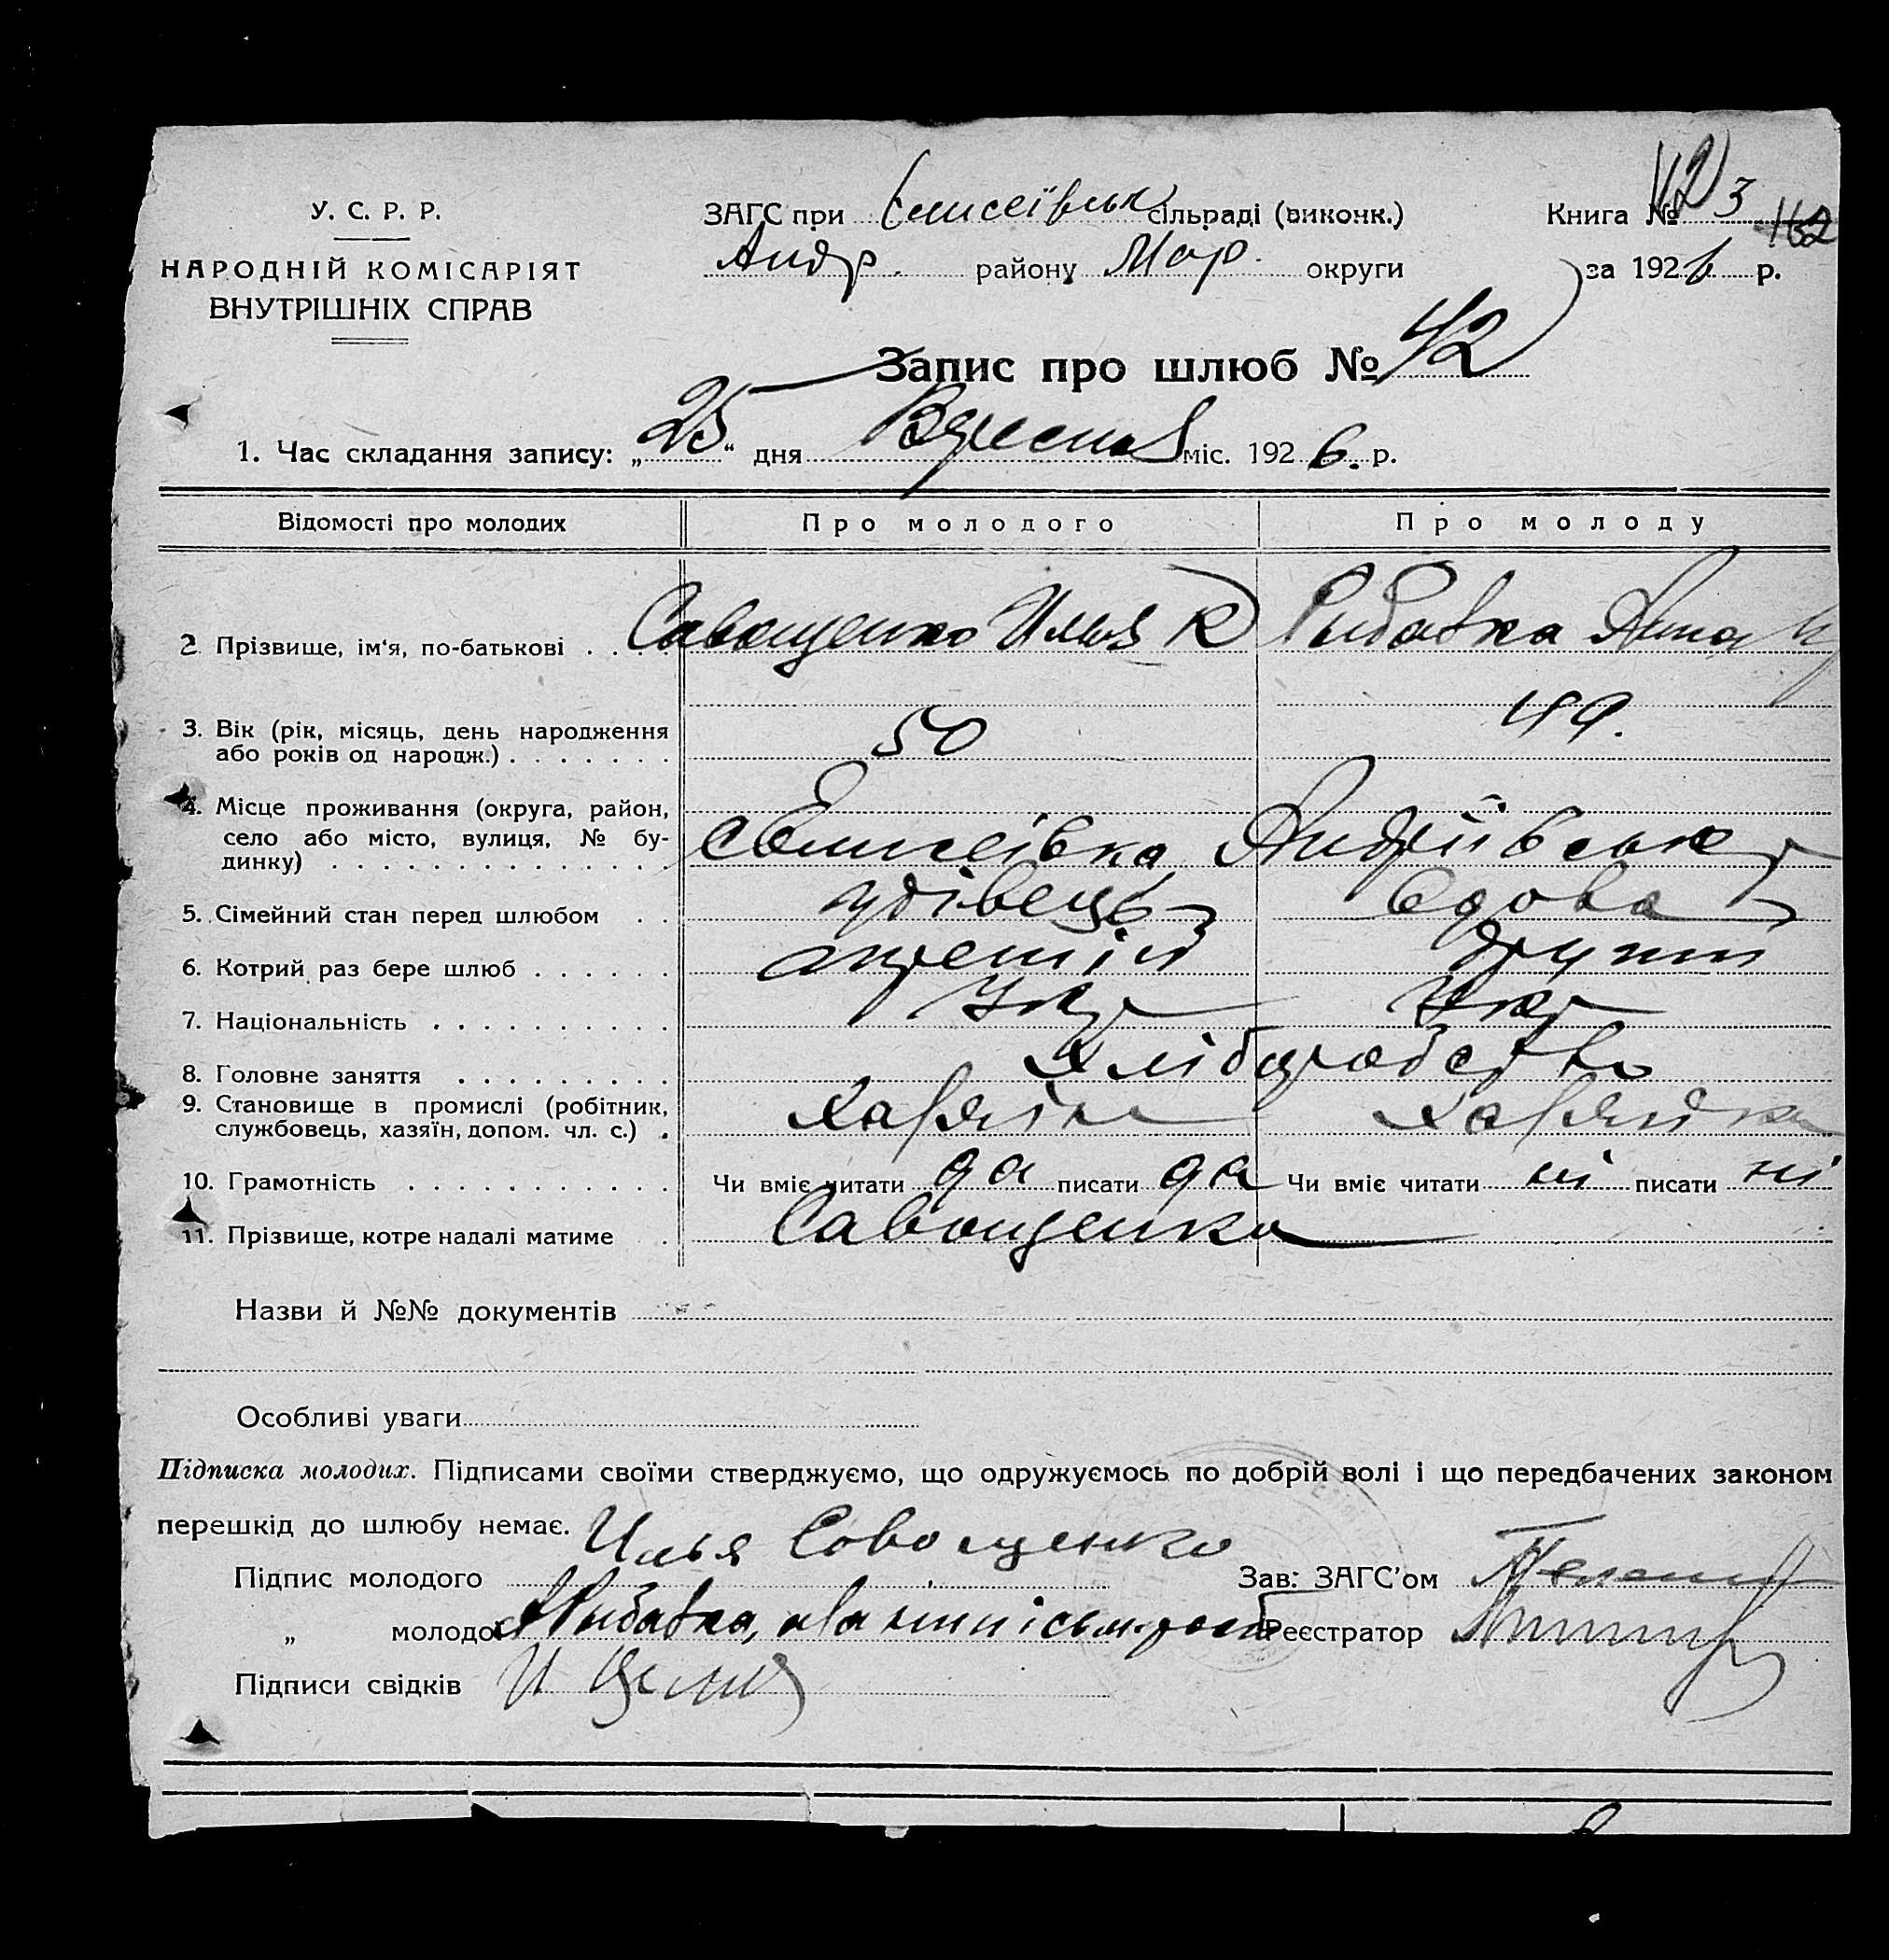 У. С. Р. Р.
НАРОДНІЙ КОМІСАРІЯТ
ВНУТРІШНІХ СПРАВ
ЗАГС при Єлисеївськ сільраді (виконк.)
Андр. району Мар. округи
Книга № 3
за 1926 р.
Запис про шлюб № 42
1. Час складання запису: „25“ дня Вересня міс. 1926. р.
Відомості про молодих Про молодого Про молоду
2 Прізвище, ім'я, по-батькові . . . . Савощенко Илья К Рибалка Анна
3. Вік (рік, місяць, день народження
або років од народж.) . . . . . . . 50 49.
4. Місце проживання (округа, район,
село або місто, вулиця, № бу-
динку) . . . . . . . . . . . . . . с Єлисеівка Андріївськ
5. Сімейний стан перед шлюбом . . удівець вдова
6. Котрий раз бере шлюб . . . . . . другий
7. Національність . . . . . . . . . . Укр Укр
8. Головне заняття . . . . . . . . . Хліборобство
9. Становище в промислі (робітник,
службовець, хазяїн, допом. чл. с.) . Хазяїн Хазяйка
10. Грамотність . . . . . . . . . . . Чи вміє читати да писати да Чи вміє читати ні писати ні
11. Прізвище, котре надалі матиме . Савощенко
Назви й №№ документів
Особливі уваги
Підписка молодих. Підписами своїми стверджуємо, що одружуємось по добрій волі і що передбачених законом
перешкід до шлюбу немає.
Підпис молодого Илья Совощенко Зав: ЗАГС'ом
„ молодої Рибалка, Реєстратор
Підписи свідків И